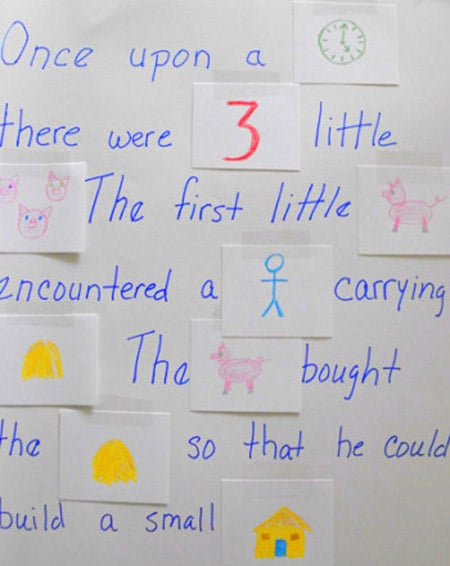 Once upon a
there were 3 little
The first little
encountered a carrying
The bought
the so that he could
build a small